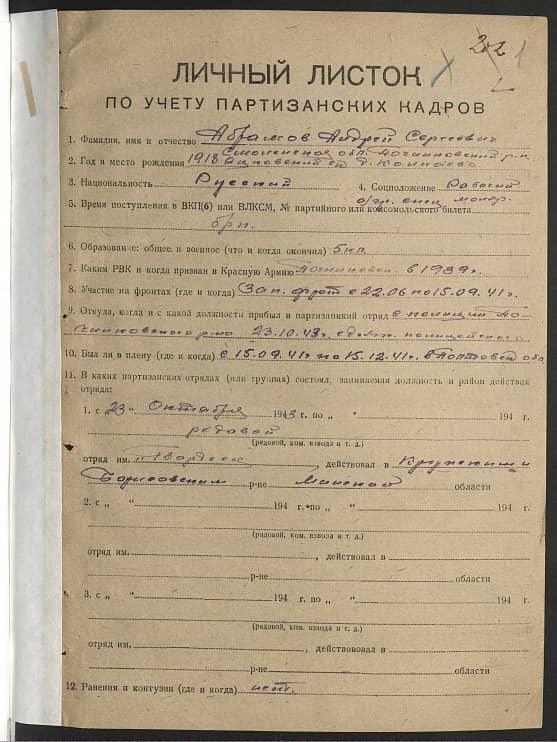 221
ЛИЧНЫЙ ЛИСТОК
ПО УЧЕТУ ПАРТИЗАНСКИХ КАДРОВ
1. Фамилия, имя и отчество Абрамов Андрей Сергеевич
Смоленская обл. Починковский р-н.
2. Год и место рождения 1918
3. Национальность Русский 4. Соцположение Рабочий
5. Время поступления в ВКП(б) или ВЛКСМ, № партийного или комсомольского билета
б/п.
6. Образование: общее и военное (что и когда окончил) 5 кл.
7. Каким РВК и когда призван в Красную Армию Починковск. в 1939г.
8. Участие на фронтах (где и когда) Зап. фронт с 22.06 по 15.09.41г.
9. Откуда, когда и с какой должности прибыл в партизанский отряд с полиции По-
чинковского р-на 23.10.43г. с полицейского
10. Был ли в плену (где и когда) с 15.09.41г. по 15.12.41г. в обл.
11. В каких партизанских отрядах (или группах) состоял, занимаемая должность и район действия
отряда:
1. с „23" Октября 1943 г. по „ " 194 г.
редовой
(рядовой, ком. взвода и т. д.)
отряд им. , действовал в
Борисовским р-не Минской области
2. с „ " 194 г. по „ " 194 г.
(рядовой, ком. взвода и т. д.)
отряд им. , действовал в
р-не области
3. с „ " 194 г. по „ " 194 г.
(рядовой, ком. взвода и т. д.)
отряд им. , действововал в
р-не области
12. Ранения и контузии (где и когда) нет.